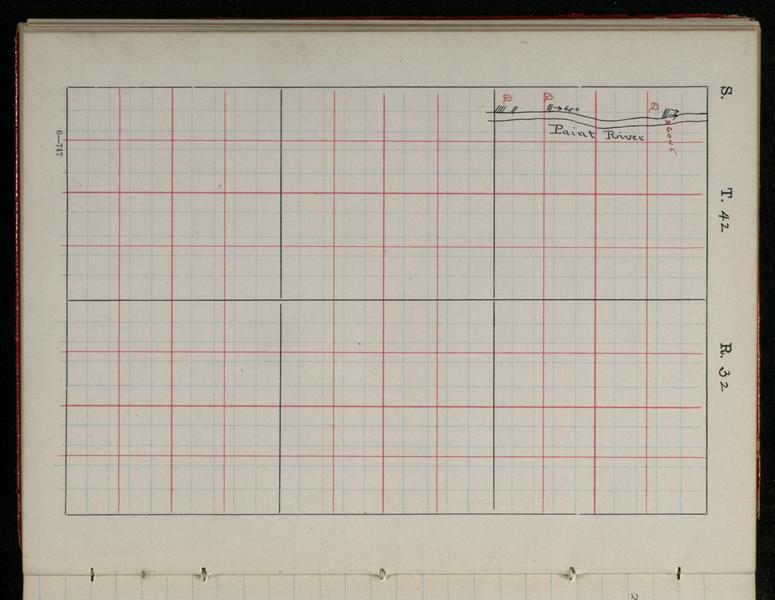 S. T. 42 R. 32
6—747
Q Q Q
Paint River